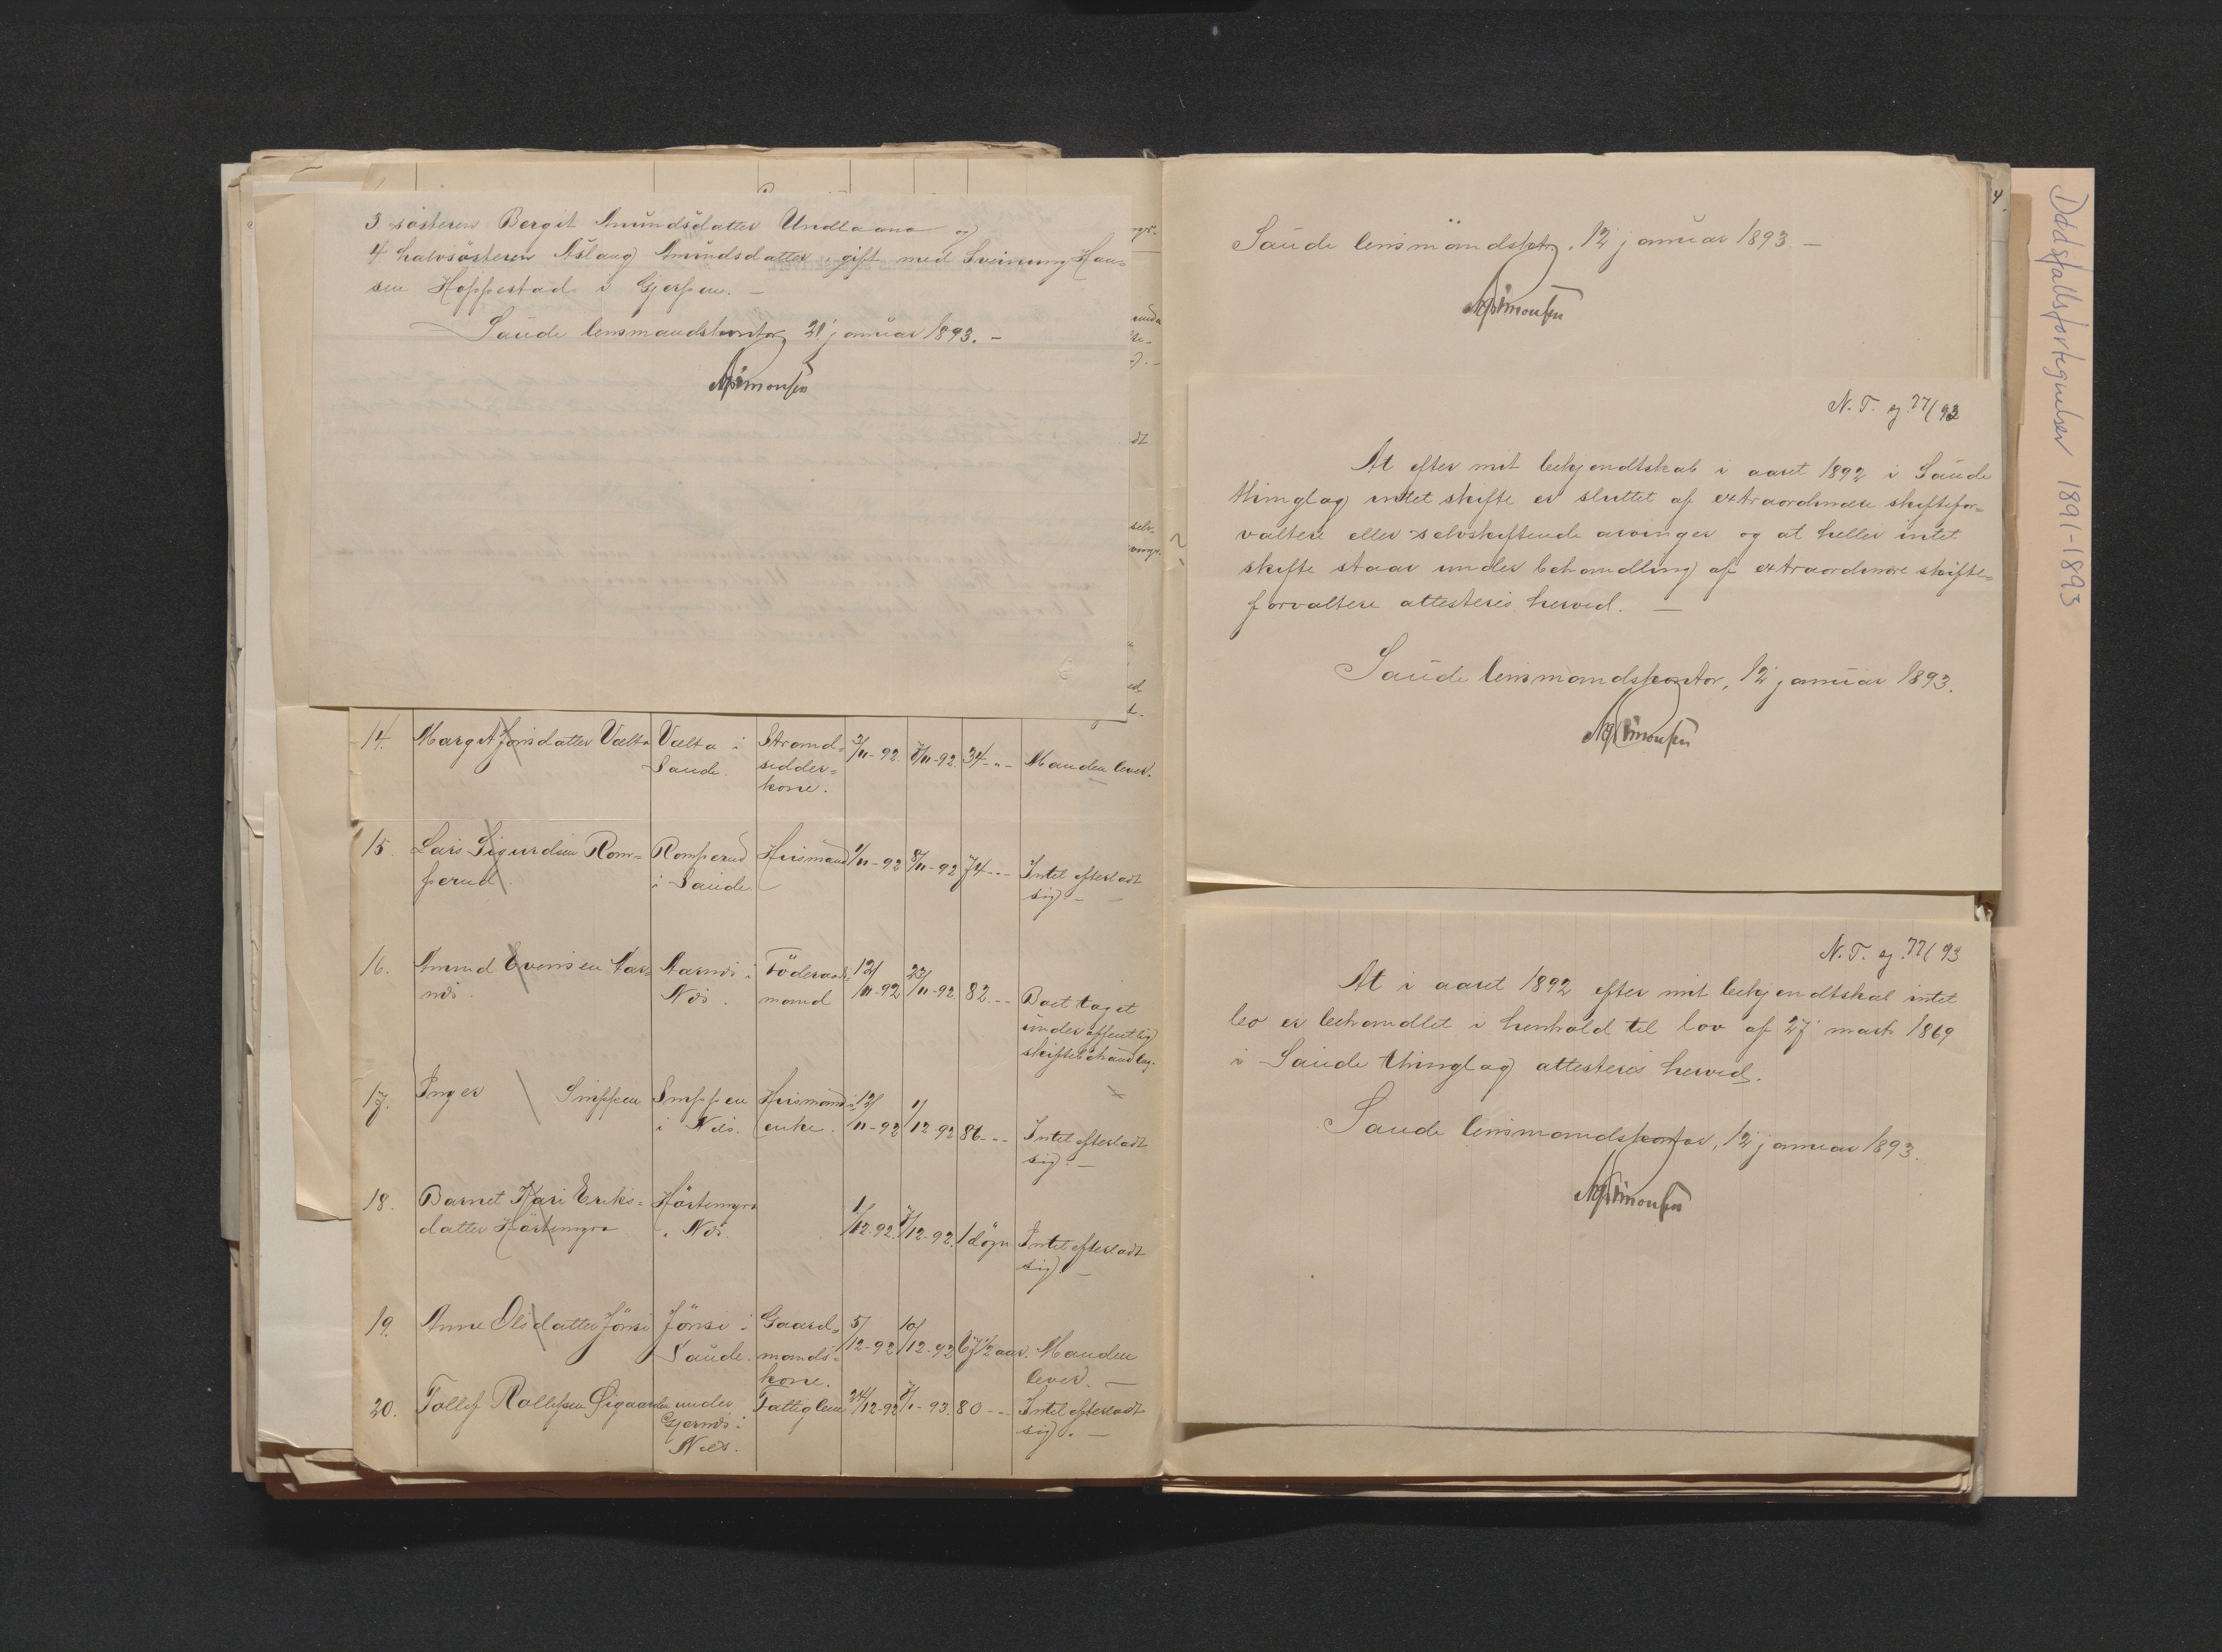 3 søsteren Bergit Amundsdatter Undlaana og
4 halvsøsteren Aslaug Amundsdatter gift med Sveinung Han=
sen Hoppestad i Gjerpen. –
Saude lensmandskontor 21 januar 1893. –
14. Margit Jonsdatter Vælta Vælta i Saude. Strand=sidder=kone. 3/11-92. 7/11-92. 34 - " - Manden lever.
15. Lars Sigurdsen Rom=perud. Romperud i Saude. Husmand 1/11-92 8/11-92 74 - " - Intet efterladt sig. –
16. Amund Evensen Aar=næs. Aarnæs i Næs. Föderaads=mand 12/11-92 23/11-92. 82 - - Boet taget under offentlig skiftebehandlng.
17. Inger Simpen i Næs. Husmands=enke. 12/11-92 1/12-92 86 - - Intet efterladt sig. –
18. Barnet Kari Eriks=datter Hörtemyra Hörtemyra i Næs. 1/12-92. 7/12-92. 1 dögn Intet efterladt sig. –
19. Anne Olsdatter Jönsi Jönsi i Saude. Gaard=mands=kone. 5/12-92 10/12-92 67 1/2 aar. Manden lever. –
20. Tollef Rollefsen Øigaarden under Gjernæs i Næs. Fattiglem 24/12-92 7/1-93. 80 - - Intet efterladt sig. –
Saude lensmandsktr, 12 januar 1893. –
N. T. ej. 77/93
At efter mit bekjendtskab i aaret 1892 i Saude
thinglag intet skifte er sluttet af extraordinære skiftefor=
valtere eller selvskiftende arvinger og at heller intet
skifte staar under behandling af extraordinære skifte=
forvaltere attesteres herved. –
Saude lensmandskontor, 12 januar 1893.
N. T. ej. 77/93
At i aaret 1892 efter mit bekjendtskab intet
bo er behandlet i henhold til lov af 27 mart 1869
i Saude thinglag attesteres herved.
Saude lensmandskontor, 12 januar 1893.
Dødsfallsfortegnelser 1891-1893